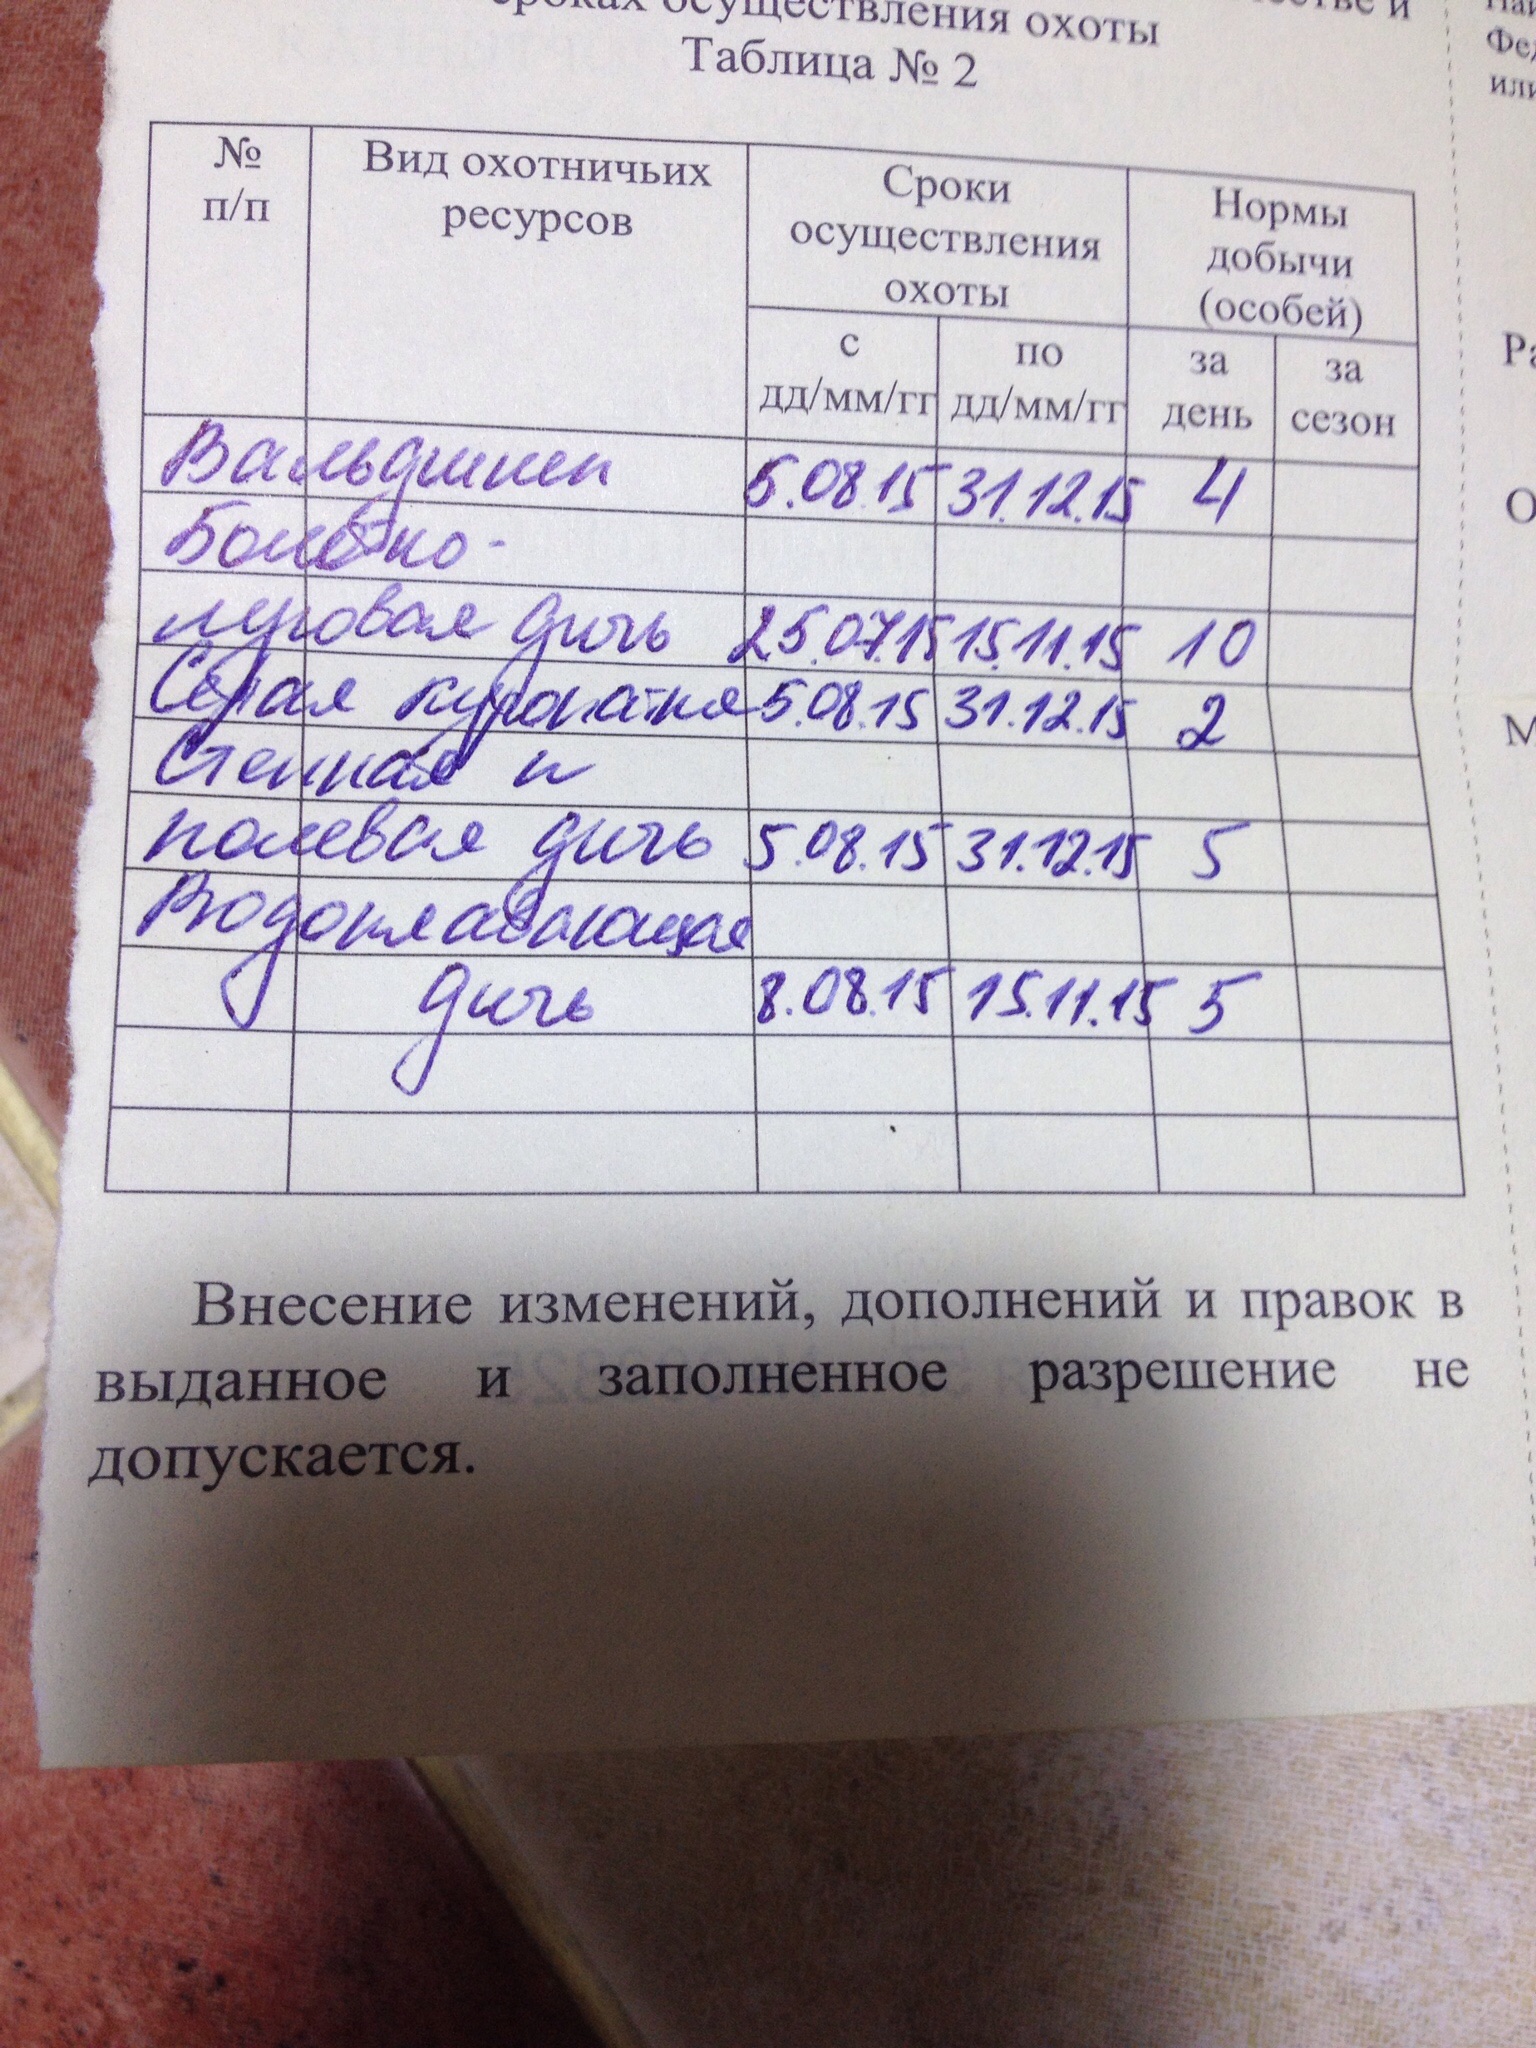 сроках осуществления охоты
Таблица № 2
№ п/п Вид охотничьих ресурсов Сроки осуществления охоты Нормы добычи (особей)
с дд/мм/гг по дд/мм/гг за день за сезон
Вальдшнеп 5.08.15 31.12.15 4
Болотно-
луговая дичь 25.07.15 15.11.15 10
Серая куропатка 5.08.15 31.12.15 2
Степная и
полевая дичь 5.08.15 31.12.15 5
Водоплавающая
дичь 8.08.15 15.11.15 5
Внесение изменений, дополнений и правок в
выданное и заполненное разрешение не
допускается.
или